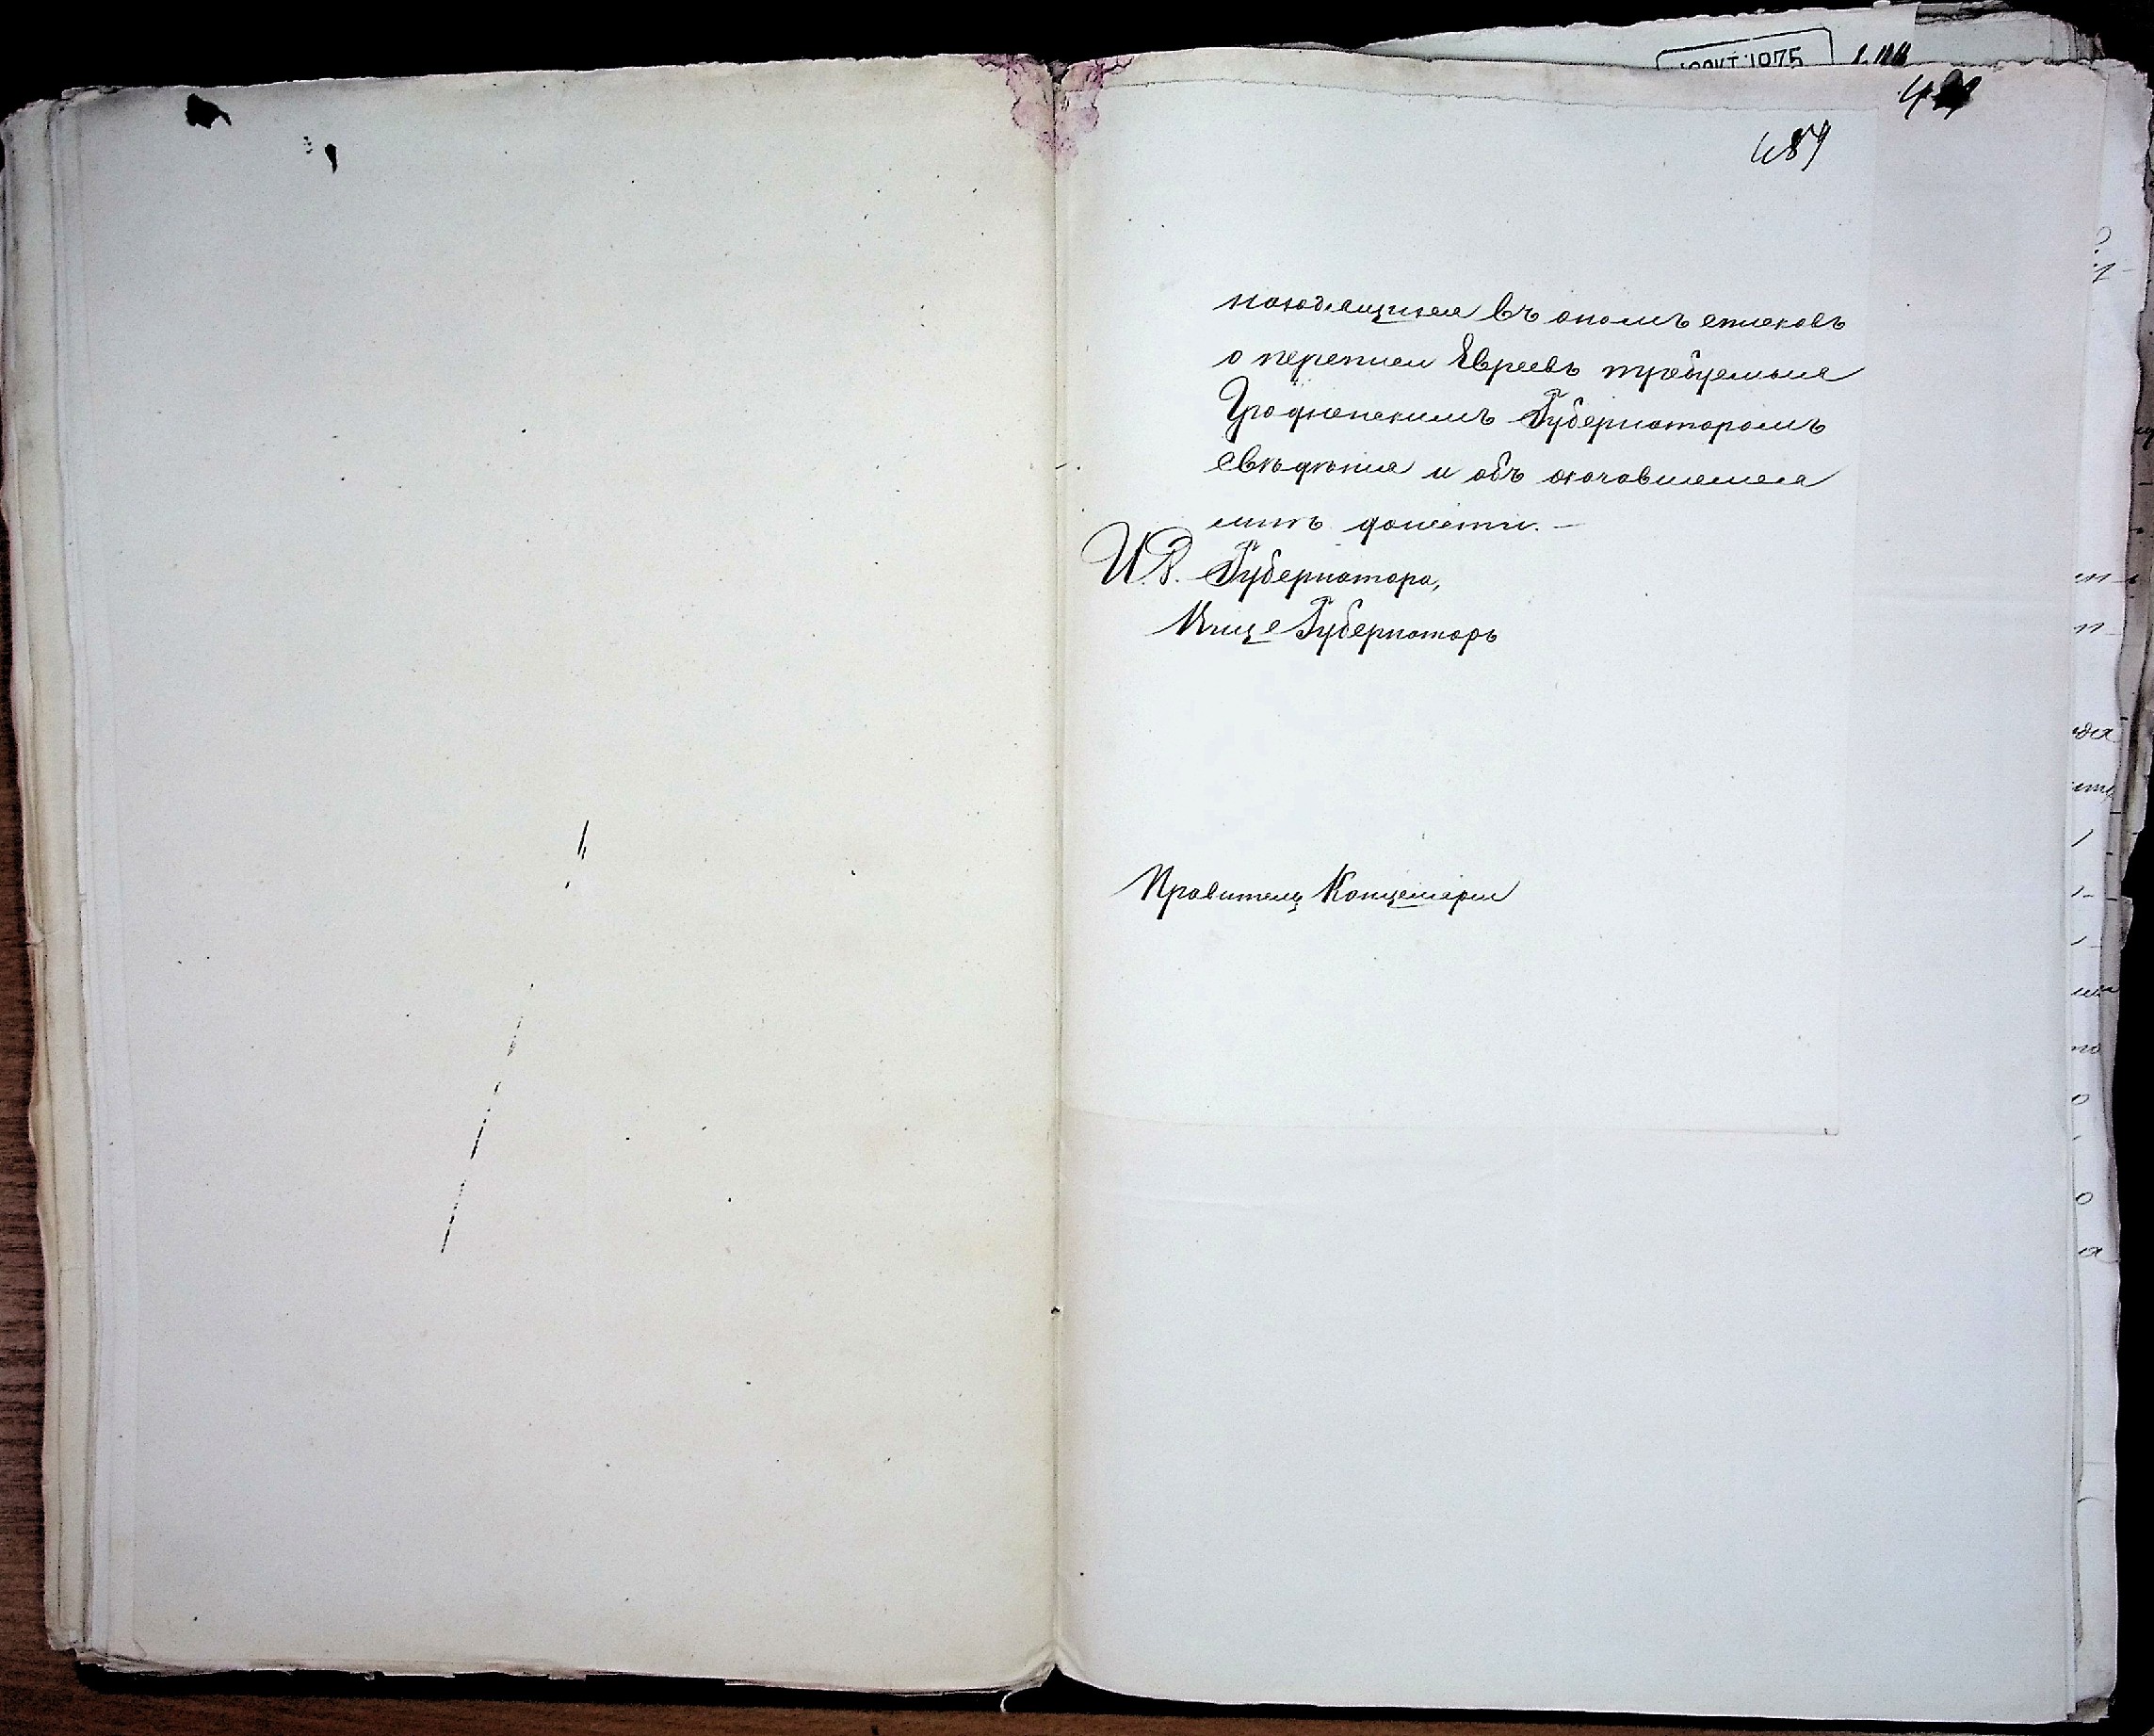 489
находящихся въ ономъ списковъ
о переписи Евреевъ требуемыя
Гродненскимъ Губернаторомъ
свѣдѣнія и объ оказавшемся
мнѣ донести. —
И.д. Губернатора,
Вице Губернаторъ
Правитель Канцеляріи